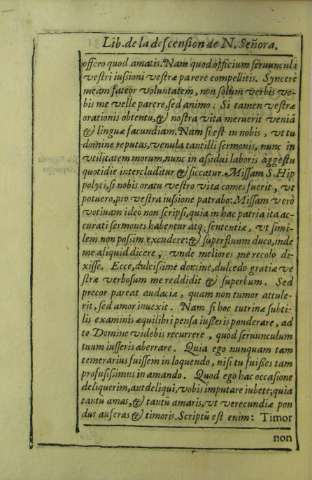 Lib. de la descension de N. Señora.
offero quod amatis. Nam quod officium seruuncula
vestri iussioni vestræ parere compellitis. Synceré
meam fateor voluntatem, non solùm verbis vo-
bis me velle parere, sed animo. Si tamen vestræ
orationis obtentu, & nostra vita meruerit venià
& linguæ facundiam. Nam si est in nobis, vt tu
domine reputas, venula tantilli sermonis, nunc in
vtilitatem morum, nunc in asidua laboris aggestu
quotidie intercluditur & siccatur. Missam S. Hip
polyti, si nobis oratu vestro vita comes fuerit, vt
potuero, pro vestra iussione patrabo: Missam verò
votiuam ideo non scripsi, quia in hac patria ita ac-
curati sermones habentur atq; sententiæ, vt simi-
lem non possim excudere: & superfluum duco, inde
me aliquid dicere, vnde meliores me recolo di-
xisse. Ecce, dulcissime domine, dulcedo gratiæ ve
stræ verbosum me reddidit & superbum. Sed
precor pareat audacia, quam non tumor attule-
rit, sed amor inuexit. Nam si hoc tutrinæ subti-
lis examinis æquilibri pensa iusseris ponderare, ad
te Domine videbis recurrere, quod seruunculum
tuum iusseris aberrare. Quia ego nunquam tam
temerarius fuissem in loquendo, nisi tu fuisses tam
profusissimus in amando. Quod ego hac occasione
deliquerim, aut deliqui, vobis imputare iubete, quia
tantu amas, & tantu amaris, vt verecundiæ pon
dus auferas & timoris. Scriptũ est enim: Timor
non